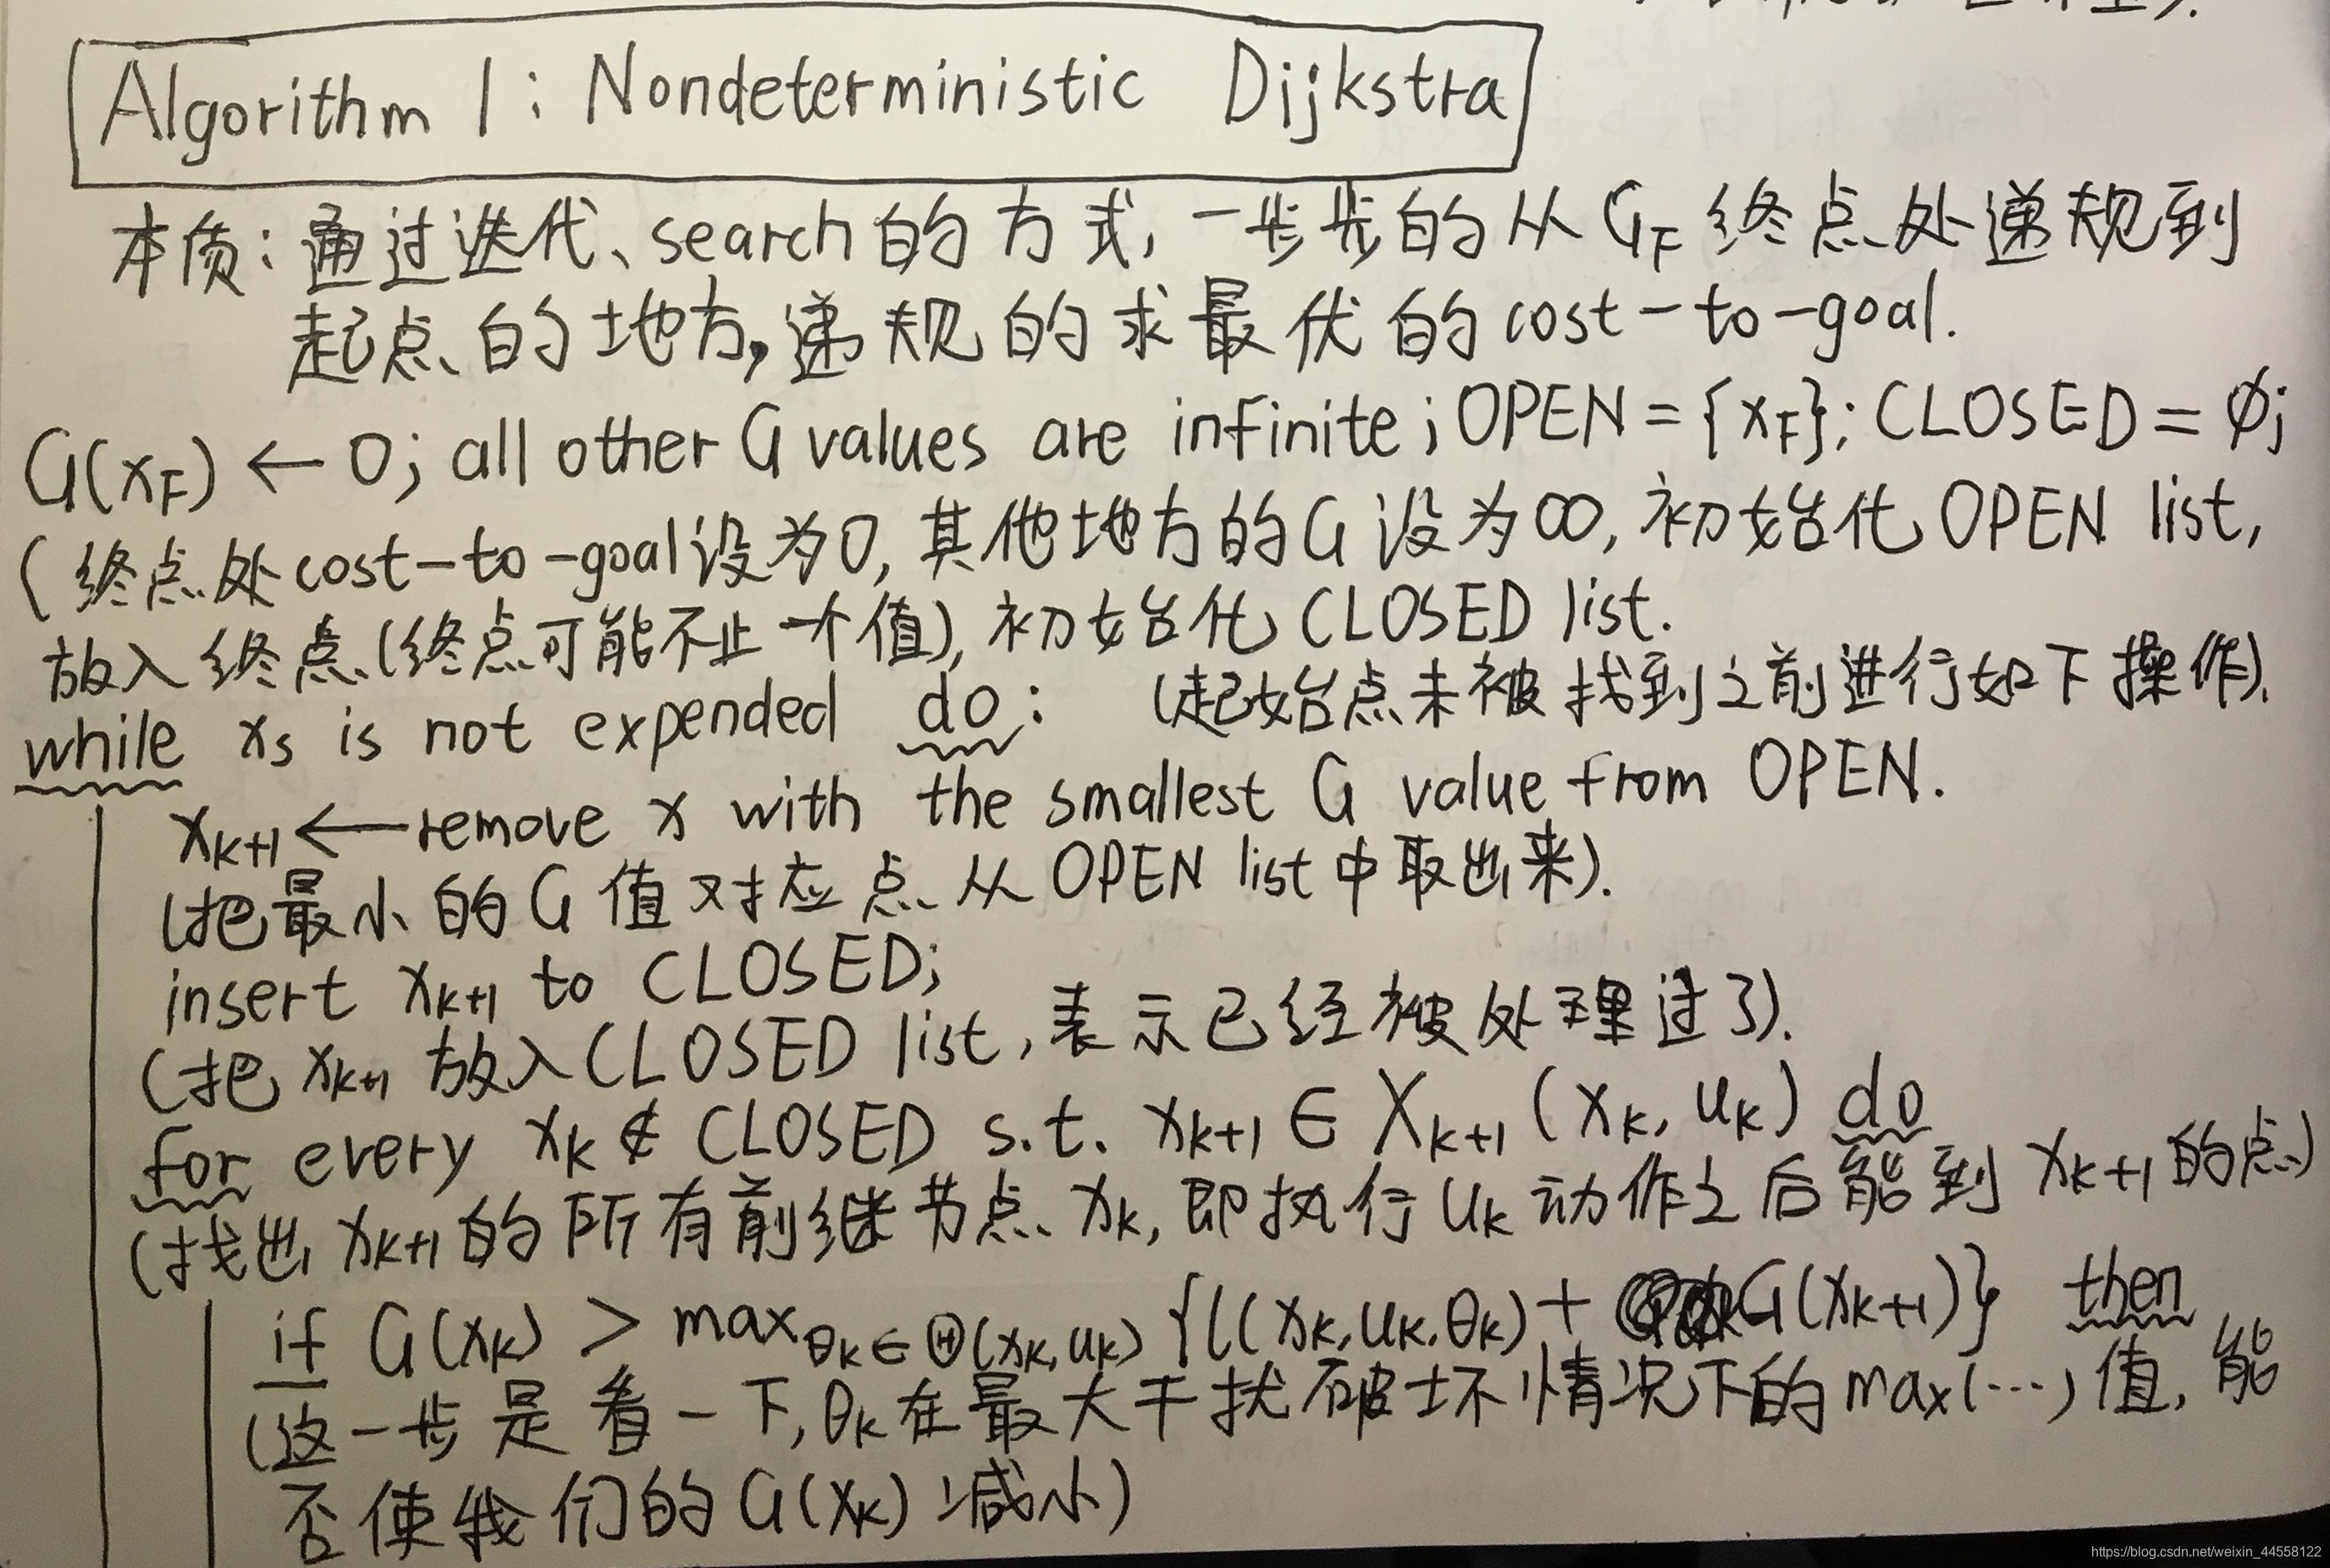 Algorithm 1: Nondeterministic Dijkstra
本质:通过迭代、search的方式,一步步的从GF终点处递规到
起点的地方,递规的求最优的cost-to-goal.
G(xF) ← 0; all other G values are infinite; OPEN = {xF}; CLOSED = ∅;
(终点处cost-to-goal设为0,其他地方的G设为∞,初始化OPEN list,
放入终点(终点可能不止一个值),初始化CLOSED list.
while xs is not expended do: (起始点未被找到之前进行如下操作).
xk+1 ← remove x with the smallest G value from OPEN.
(把最小的G值对应点从OPEN list中取出来).
insert xk+1 to CLOSED;
(把xk+1放入CLOSED list,表示已经被处理过了).
for every xk ∉ CLOSED s.t. xk+1 ∈ Xk+1 (xk, uk) do
(找出xk+1的所有前继节点xk,即执行uk动作之后能到xk+1的点)
if G(xk) > maxθk∈Θ(xk,uk) {l(xk,uk,θk) + G(xk+1)} then
(这一步是看一下,θk在最大干扰破坏情况下的max(…)值,能
否使我们的G(xk)减小)
https://blog.csdn.net/weixin_44558122